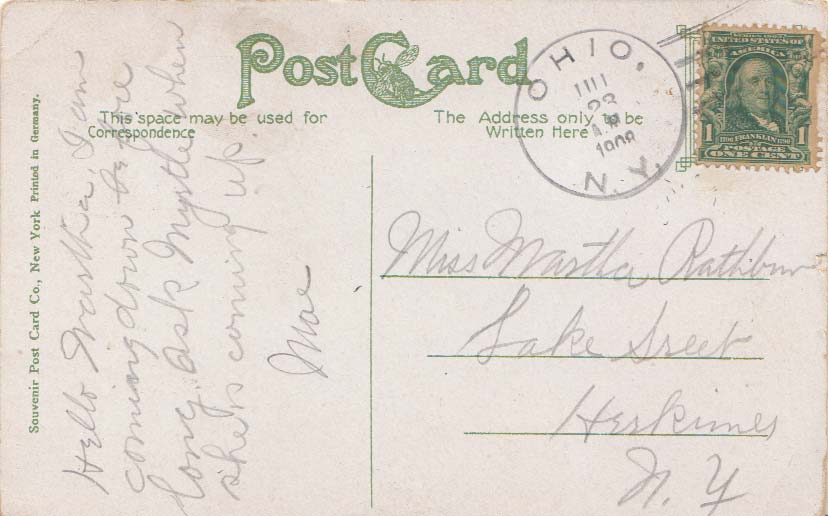 Post Card
This space may be used for
Correspondence
The Address only to be
Written Here
OHIO,
JUL
23
1908
N.Y.
SERIES 1902
UNITED STATES OF
AMERICA
1
1
FRANKLIN
POSTAGE
ONE CENT
Souvenir Post Card Co., New York Printed in Germany.
Hello Martha, I am
coming down before
long. ask Myrtle when
she is coming up.
Mae
Miss Martha Rathbun
Lake Sreet
Herkimer
N. Y